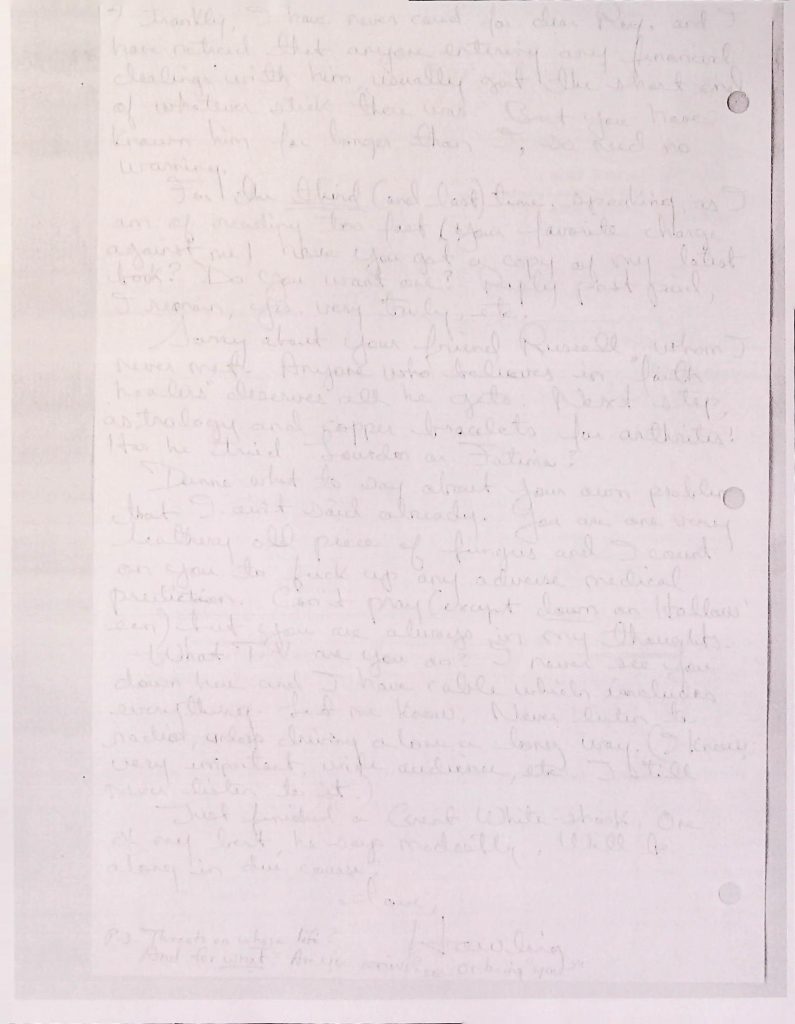 Frankly, I have never cared for dear Ray, and I
have noticed that anyone entering any financial
dealings with him usually got the short end
of whatever stick there was. But you have
known him far longer than I, so need no
warning.
For the third (and last) time, speaking as I
am of reading too fast (your favorite charge
against me) have you got a copy of my latest
book? Do you want one? Reply post paid,
I remain, yrs. very truly, etc.
Sorry about your friend Russell, whom I
never met. Anyone who believes in "faith
healers" deserves all he gets. Next step,
astrology and copper bracelets for arthritis!
Has he tried Lourdes or Fatima?
Dunno what to say about your own problem
that I ain't said already. You are one very
leathery old piece of fungus and I count
on you to fuck up any adverse medical
prediction. Can't pray (except down on Hallow
een) but you are always in my thoughts.
What T.V. are you on? I never see you
down here and I have cable which includes
everything. Let me know. Never listen to
radio, unless driving alone a long way. (I know,
very important, wide audience, etc. I still
never listen to it.)
Just finished a Great White shark. One
of my best, he says modestly. Will be
along in due course.
Love,
P.S. Threats on whose life?
And for what? Are you